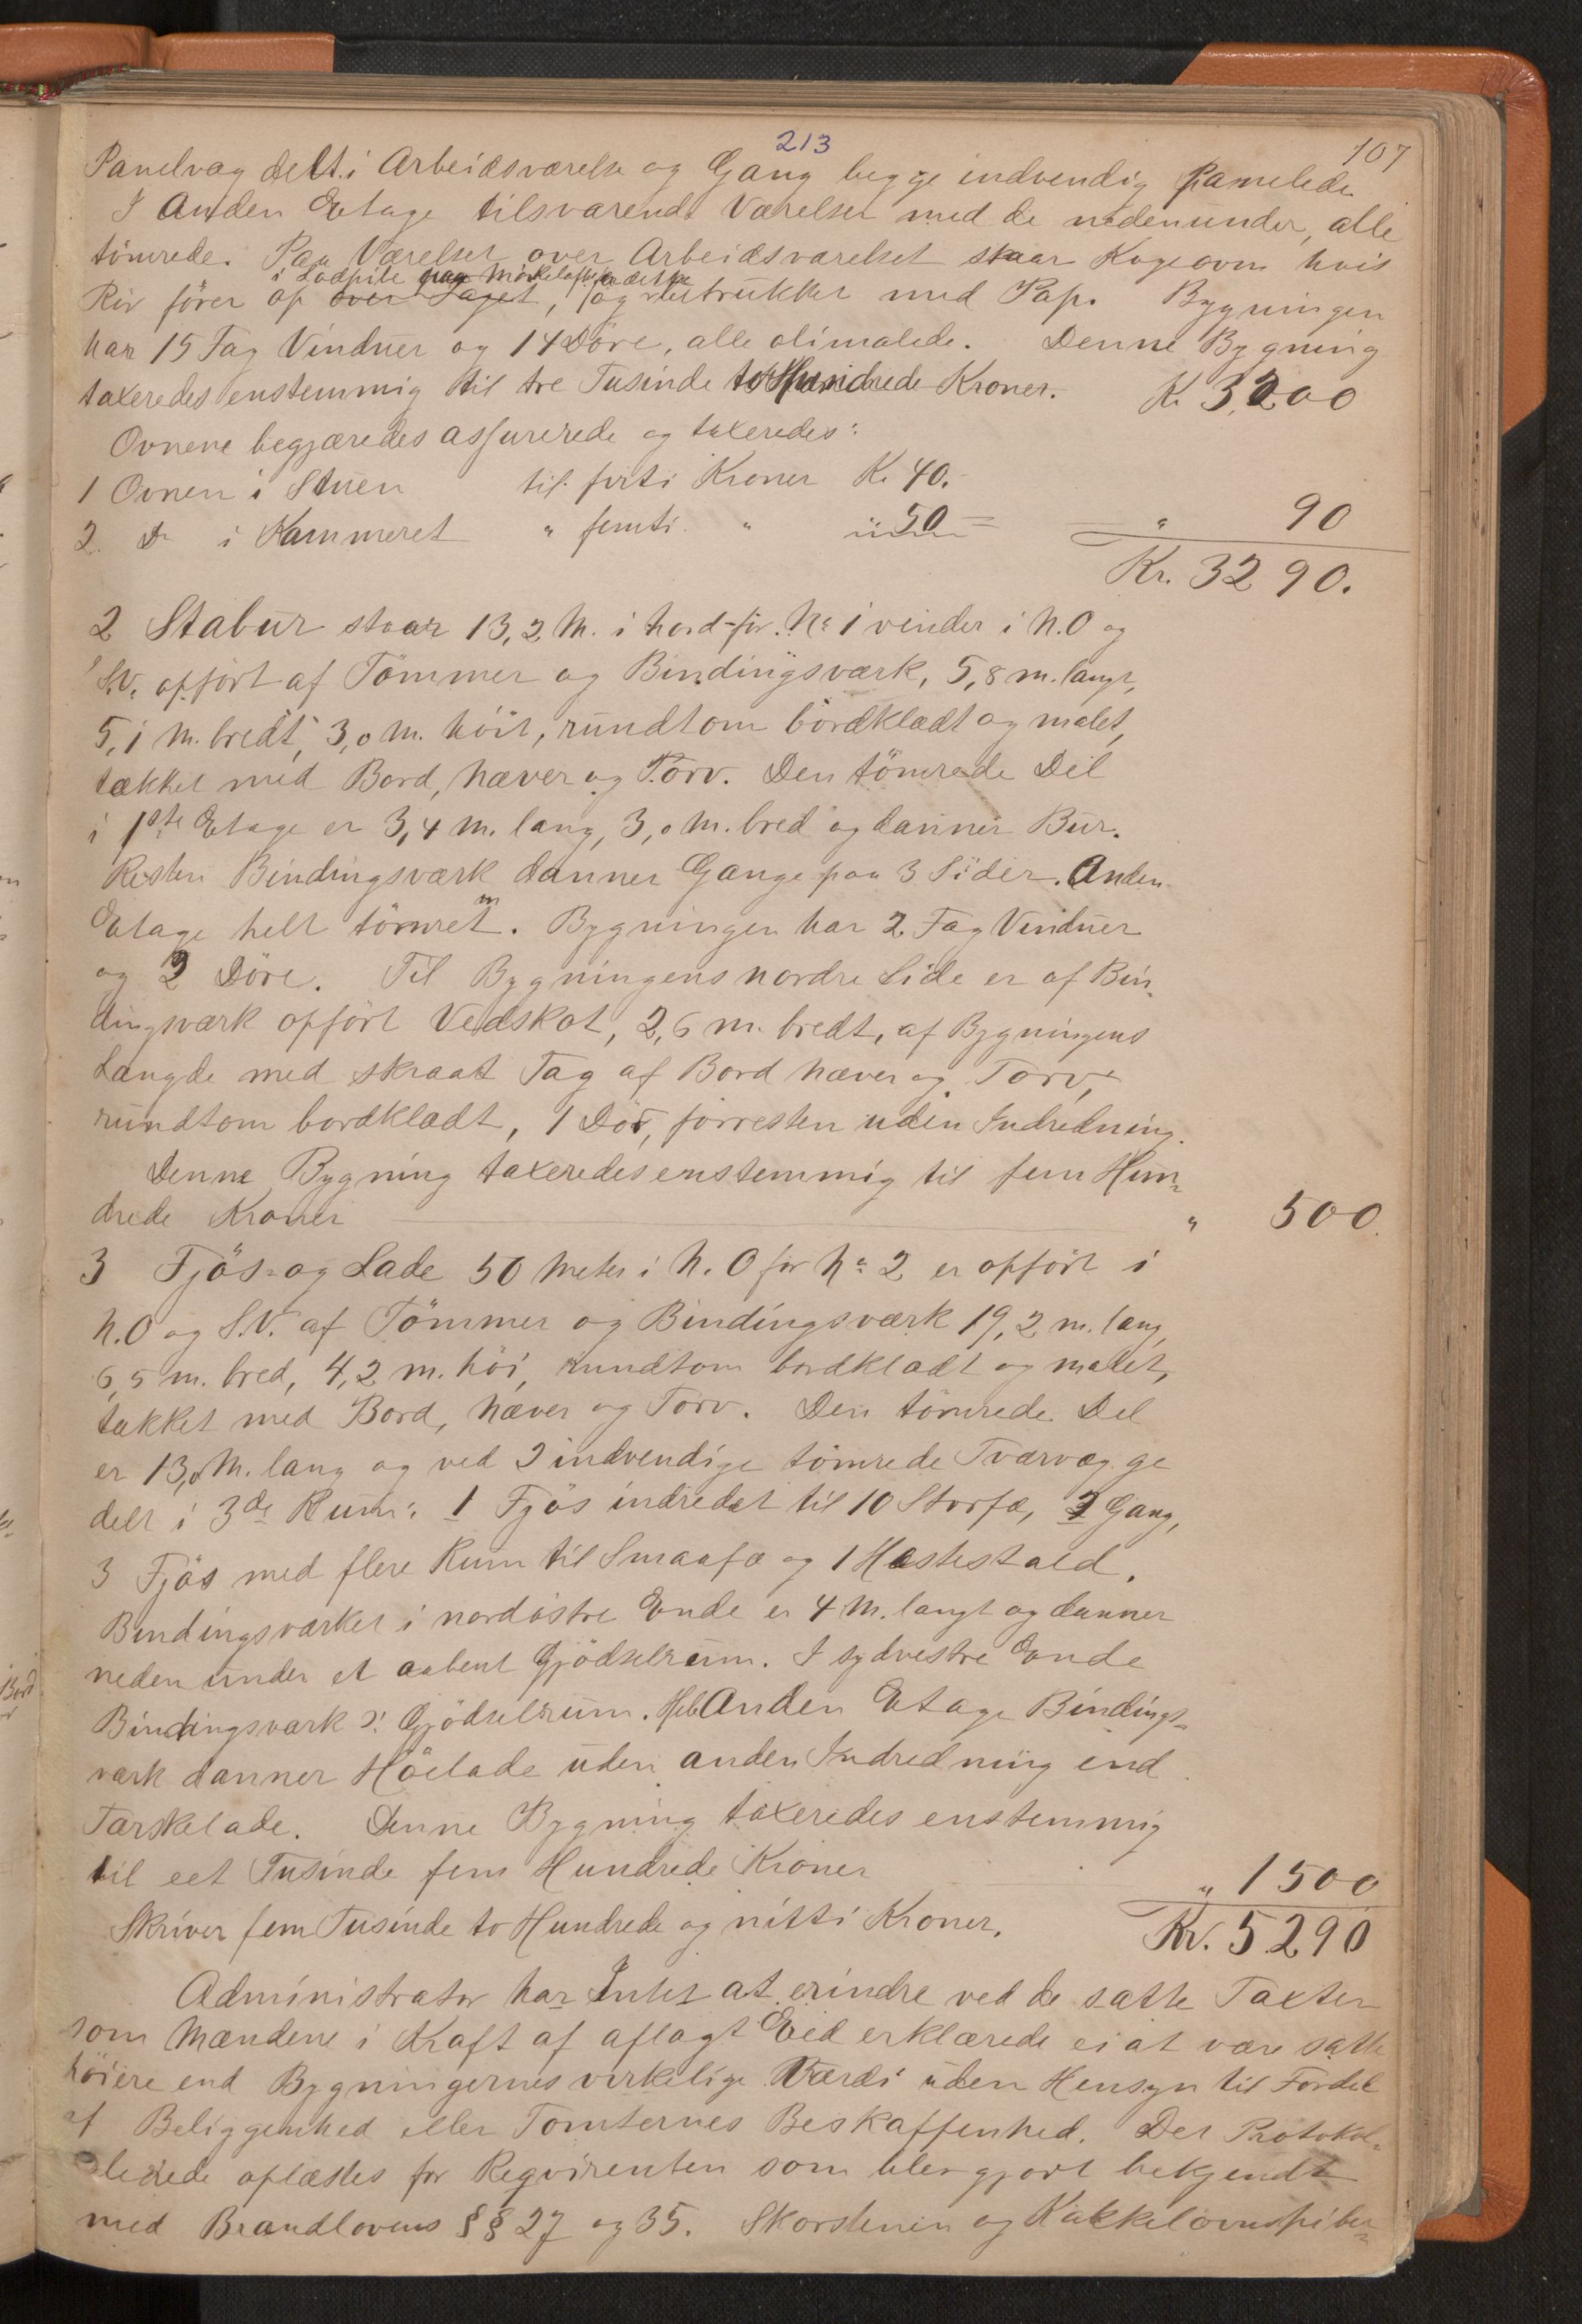 213
107
Panelvæg delt i Arbeidsværelse og Gang begge indvendig panelede
I Anden Etage tilsvarende Værelser med de nedenunder, alle
tömrede. Paa Værelset over Arbeidsværelset staar Kogeovn hvis
i Lodpibe
Rör förer op over Taget, og betrukket med Pap. Bygningen
har 15 Fag Vinduer og 14 Döre, alle olimalede. Denne Bygning
taxeredes enstemmig til tre Tusinde to Hundrede Kroner. Kr 3200
Ovnene begjæredes assurerede og taxeredes:
1 Ovnen i Stuen til firti Kroner Kr. 40.
2. Do i Kammeret " femti " " 50 = " 90
Kr. 3290.
2 Stabur staar 13,2 M. i Nord for No 1 vender i N.O og
S.V. opfört af Tömmer og Bindingsværk, 5,8 m. langt,
5,1 M. bredt, 3,0 M. höit, rundtom bordklædt og malet,
tækket med Bord, Næver og Törv. Den tömrede Del
i 1ste Etage er 3,4 M. lang, 3,0 M. bred og danner Bur.
Resten Bindingsværk danner Gange paa 3 Sider. Anden
Etage helt tömret. Bygningen har 2 Fag Vinduer
og 2 Döre. Til Bygningens nordre Side er af Bin-
dingsværk opfört Vedskot, 2,6 m. bredt, af Bygningens
Længde med skraat Tag af Bord Næver og Törv,
rundtom bordklædt, 1 Dör, forresten uden Indredning.
Denne Bygning taxeredes enstemmig til fem Hun-
drede Kroner " 500.
3 Fjös- og Lade 50 Meter i N.O for No 2 er opfört i
N.O og S.V. af Tömmer og Bindingsværk 19,2 m. lang,
6,5 m. bred, 4,2 m. höi, rundtom bordklædt og malet,
tækket med Bord, Næver og Törv. Den tömrede Del
er 13,0 M. lang og ved 2 indvendige tömrede Tværvægge
delt i 3de Rum: 1 Fjös indredet til 10 Storfæ, 2 Gang,
3 Fjös med flere Rum til Smaafæ og 1 Hestestald.
Bindingsværket i nordöstre Ende er 4 M. langt og danner
neden under et aabent Gjödselrum. I sydvestre Ende
Bindingsværk ɔ: Gjödselrum. Hele Anden Etage Bindings-
værk danner Hölade uden anden Indredning end
Tærskelade. Denne Bygning taxeredes enstemmig
til eet Tusinde fem Hundrede Kroner " 1500
Skriver fem Tusinde to Hundrede og nitti Kroner. Kr. 5290
Administrator har Intet at erindre ved de satte Taxter
som Mændene i Kraft af aflagt Eed erklærede ei at være satte
höiere end Bygningernes virkelige Værdi uden Hensyn til Fordel
af Beliggenhed eller Tomternes Beskaffenhed. Det Protokol-
lerede oplæstes for Reqvirenten som blev gjort bekjendt
med Brandlovens §§ 27 og 35. Skorstenen og Kakkelovnspiber